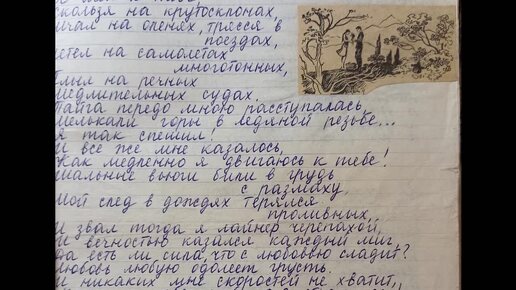 скользя на крутосклонах,
на оленях, трясся в
поездах,
летел на самолетах
многотонных,
Плыл на речных
медлительных судах.
Тайга передо мною расступалась,
Мелькали горы в ледяной резьбе...
Я так спешил!
И все же мне казалось,
Как медленно я двигаюсь к тебе!
Шальные вьюги били в грудь
с размаху,
Мой след в дождях терялся
проливных,
И звал тогда я лайнер черепахой,
И вечностью казался каждый миг.
Да есть ли сила, что с любовью сладит?
Любовь любую одолеет грусть.
И никаких мне скоростей не хватит,